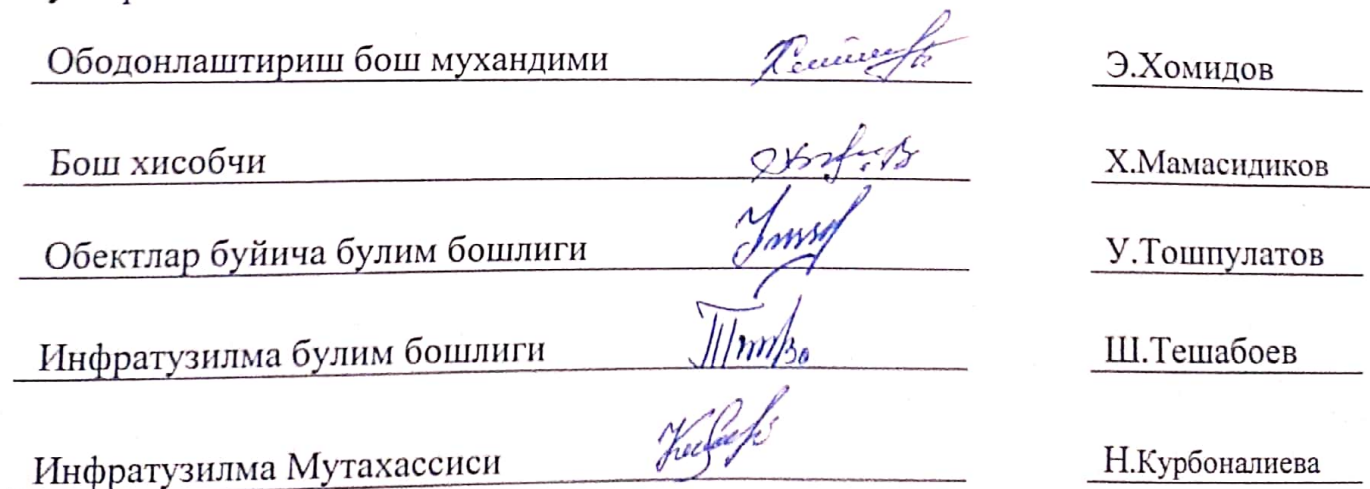 Ободонлаштириш бош мухандими Э.Хомидов
Бош хисобчи Х.Мамасидиков
Обектлар буйича булим бошлиги У.Тошпулатов
Инфратузилма булим бошлиги Ш.Тешабоев
Инфратузилма Мутахассиси Н.Курбоналиева